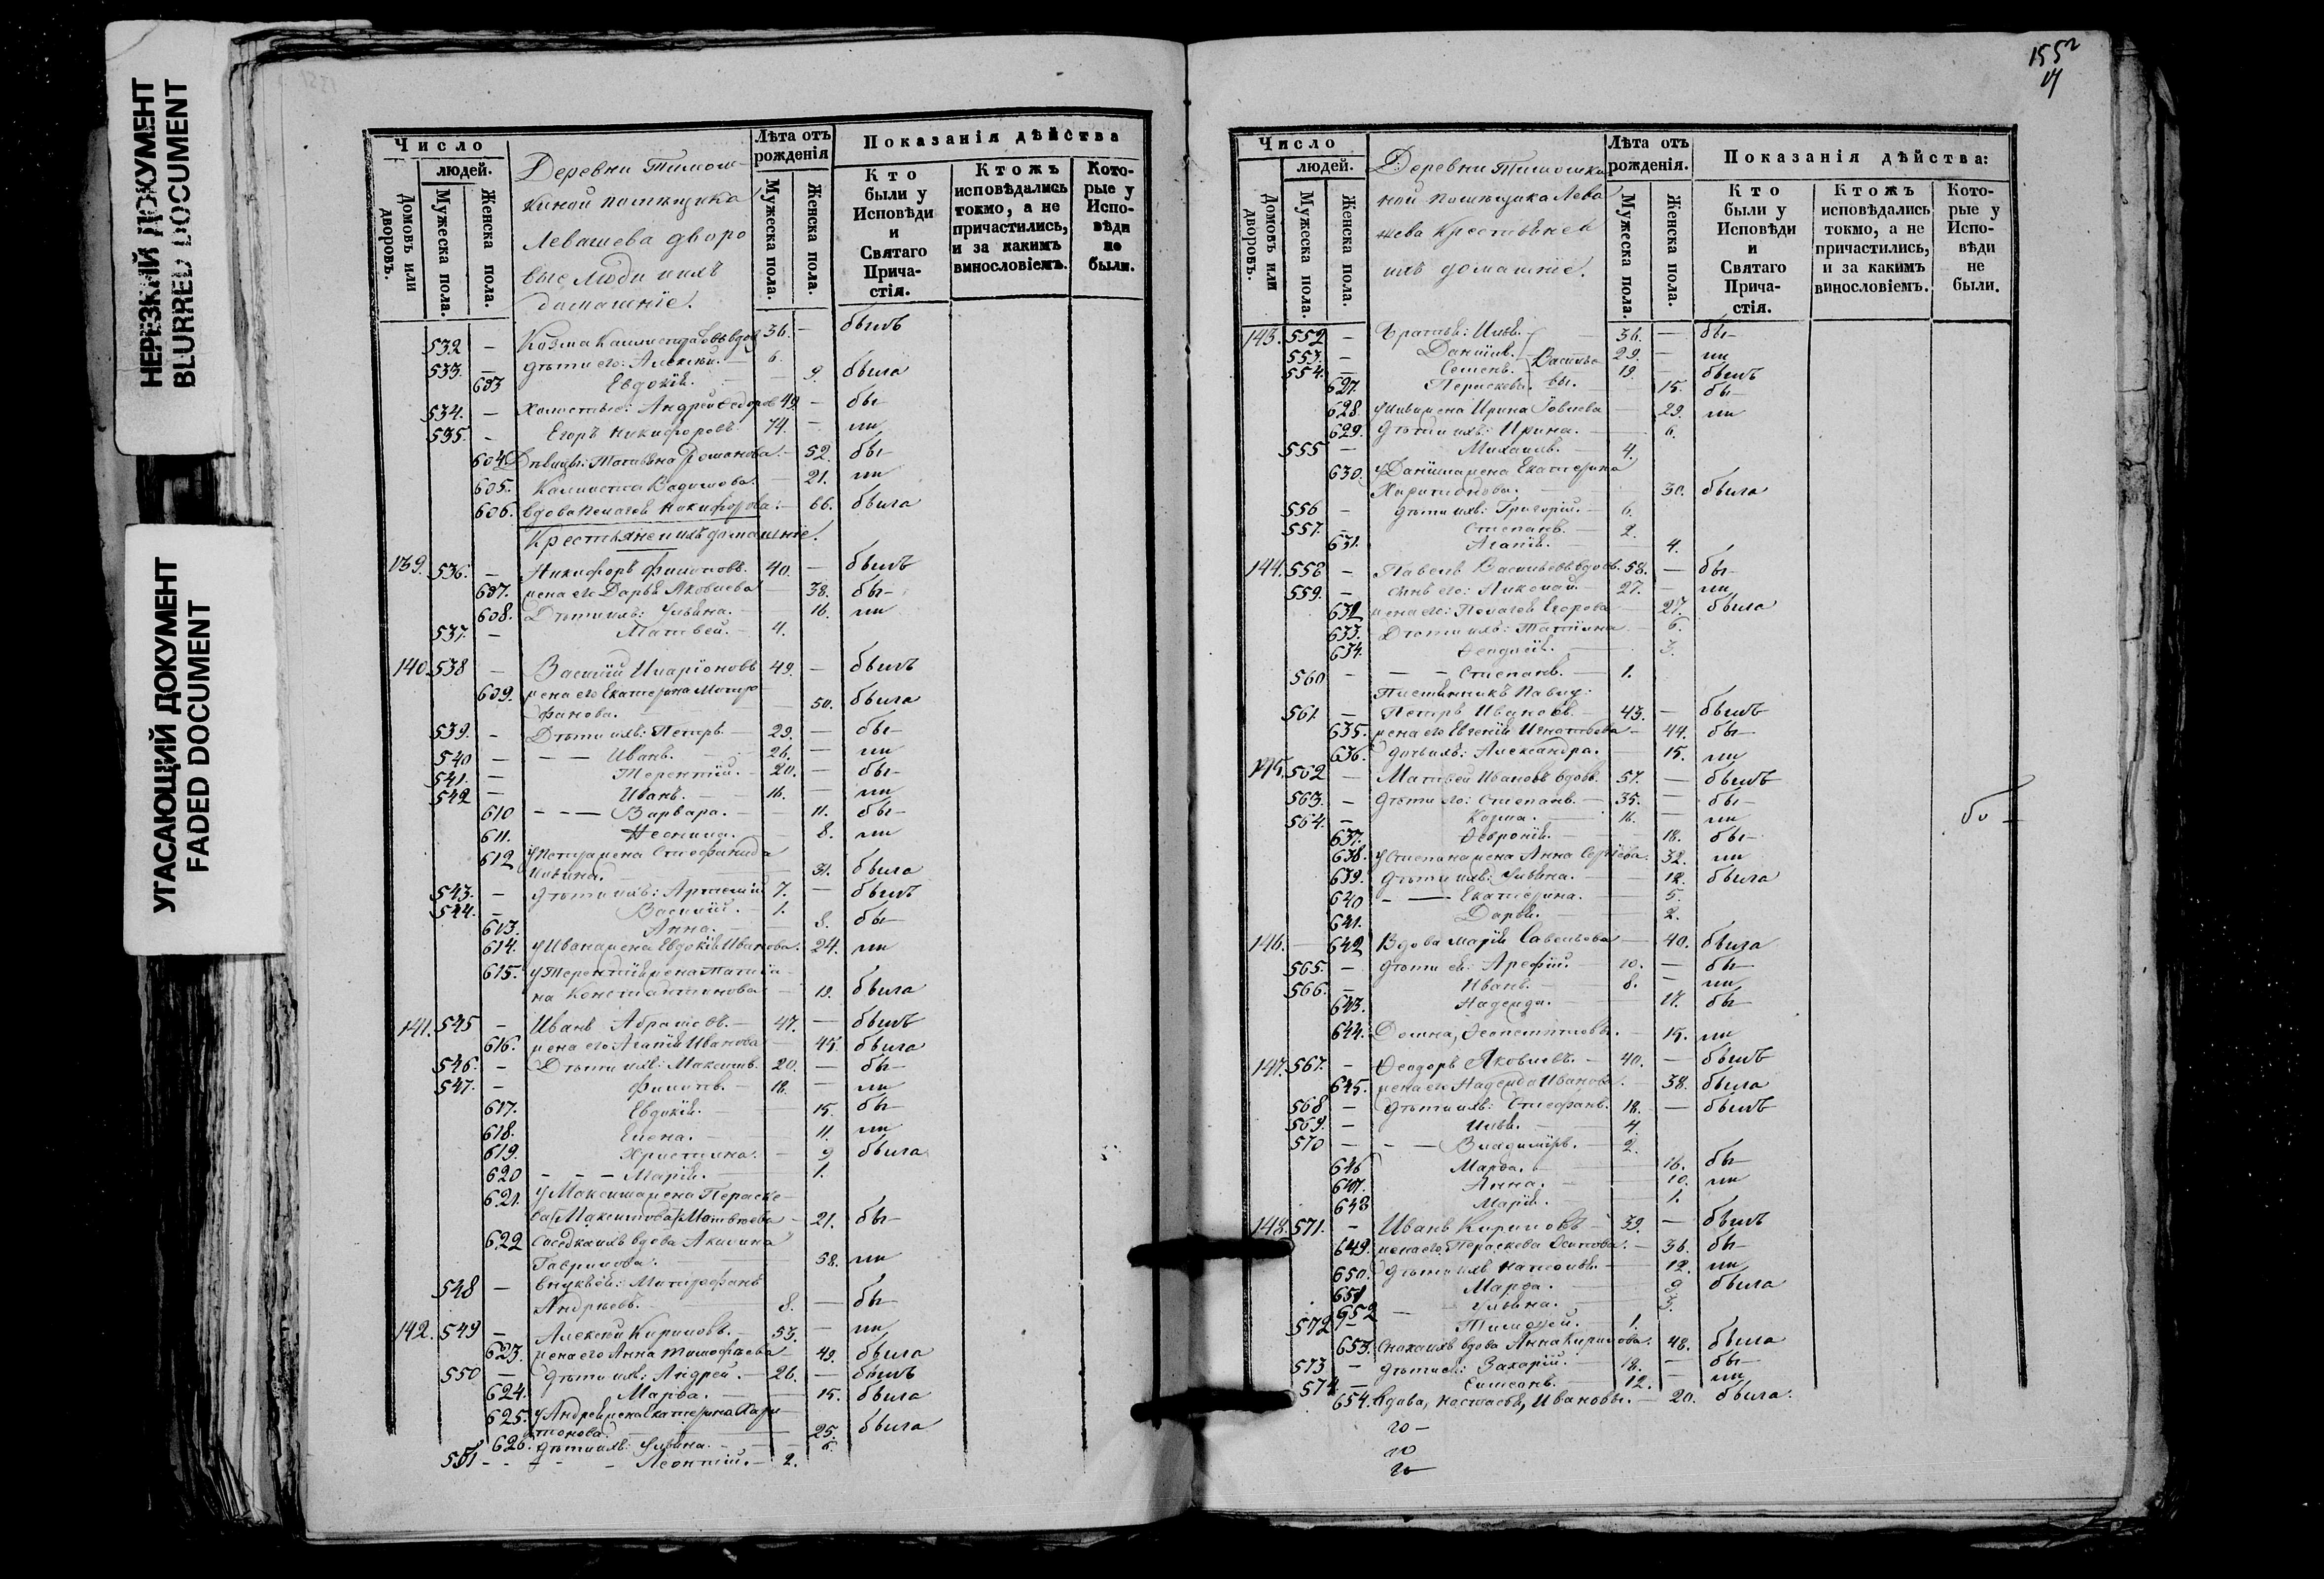 НЕРЕЗКИЙ ДОКУМЕНТ
BLURRED DOCUMENT
УГАСАЮЩИЙ ДОКУМЕНТ
FADED DOCUMENT
Число
людей.
Домовъ или дворовъ.
Мужеска пола.
Женска пола.
Деревни Тимош
киной помѣщика
Левашева дворо
вые люди и ихъ
домашніе.
Лѣта отъ рожденія
Мужеска пола.
Женска пола.
Показанія дѣйства
Кто были у Исповѣди и Святаго Прича-стія.
Ктожъ исповѣдались токмо, а не причастились, и за какимъ винословіемъ.
Кото-рые у Испо-вѣди не были.
532 - Козма вдов 36. - былъ
533. - дѣти его: Алексѣй. - 6.
603 Евдокія. 9. была
534. - Холостые: Андрей Ѳедоров 49. - бы-
535. - Егоръ Никифоровъ 74. - ли
604 Дѣвицы: Татьяна Романова. - 52. бы-
605. 21. ли
606. вдова Пелагея Никифорова: - 66. была
Крестьяне и ихъ домашніе.
139. 536. - Никифоръ Филиповъ. 40. - былъ
607. жена его Дарья Яковлева - 38. бы-
608. Дѣти ихъ: Ульяна. - 16. ли
537. - Матвей. - 4.
140. 538 - Василій Иларіоновъ 49. - былъ
609. жена его Екатерина Митро
фанова. - 50. была
539. - Дѣти ихъ: Петръ. - 29. - бы-
540 - - - Иванъ. - 26. - ли
541. - Терентій. - 20. - бы-
542 - Иванъ. - 16. - ли
610 - - - Варвара. - 11. бы-
611. 8. ли
612 у Петра жена Стефанида
Ильина. 31. была
543. - дѣти ихъ: Артемій 7. - былъ
544. - Василій. - 1.
613. Анна. - 8. бы-
614. у Ивана жена Евдокія Иванова. 24. ли
615. у Терентія жена Татія-
на Константинова - 19. была
141. 545 - Иванъ Абрамовъ. - 47. - былъ
616. жена его Агапія Иванова - 45. была
546. - Дѣти ихъ: Максимъ. 20. - бы-
547. - Филипъ. - 18. - ли
617. Евдокія. - 15. бы-
618. Елена. - 11. ли
619. Христина. - 9 была
620 - - - Марія. - 1.
621. у Максима жена Параске-
ва [Максимова] Матвѣева - 21. бы-
622 Соседка ихъ вдова Акилина
Гаврилова. 58. ли
548 - внукъ ея: Митрофанъ
Андреевъ. - 8. - бы-
142. 549 - Алексѣй Кириловъ. - 53. - ли
623. жена его Анна Тимофеева - 49. была
550 - дѣти ихъ: Андрей. - 26. - былъ
624. Марѳа. - 15. была
625. у Андрея жена Екатерина Хари
тонова. 25. была
626. дѣти ихъ: Ульяна. - 6.
551 - - - - Леонтій. - 2.
1552
Число
людей.
Домовъ или дворовъ.
Мужеска пола.
Женска пола.
Деревни Тимошки
ной помѣщика Лева
шева Крестьяне и
ихъ домашніе.
Лѣта отъ рожденія.
Мужеска пола.
Женска пола.
Показанія дѣйства:
Кто были у Исповѣди и Святаго Прича-стія.
Ктожъ исповѣдались токмо, а не причастились, и за какимъ винословіемъ.
Кото-рые у Испо-вѣди не были.
143. 552 - Братья: Илья. 36. - бы-
553. - Даніилъ. Василье 29. - ли
554. - Семенъ. 19. - былъ
627. Параскева. вы. 15. бы-
628. у Ильи жена Ирина Іовлева 29. ли
629. дѣти ихъ: Ирина. - 6.
555 - Михаилъ. - 4.
630. у Даніила жена Екатерина
Харитонова. 30. была
556 - дѣти ихъ: Григорій. - 6.
557. - Степанъ. - 2.
631. Агапія. - 4.
144. 558 - Павелъ Васильевъ вдовъ. 58. - бы-
559. - сынъ его: Николай. - 27. - ли
632 жена его: Пелагея Егорова - 27. была
633. Дѣти ихъ: Татіана - 6.
634. 3.
560 - - - Степанъ. - 1.
561. - Петръ Ивановъ. - 43. - былъ
635. жена его Евгенія Игнатьева - 44. бы-
636. дочь ихъ: Александра. 15. ли
145. 562 - Матвей Ивановъ вдовъ. 57. - былъ
563. - дѣти его: Степанъ. - 35. - бы-
564. - Козма. - 16. - ли
637. Ѳевронія. - 18. бы-
638. у Степана жена Анна Сергіева. 32. ли
639. дѣти ихъ: Ульяна. - 12. была
640 - - - Екатерина. - 5.
641. Дарья. - 2.
146. - 642 Вдова Марія Савельева - 40. была
565. - дѣти ея: Арефій. - 10. - бы-
566. - Иванъ. - 8. - ли
643. Надежда. - 17. бы-
644. Домна, - 15. ли
147. 567. - Ѳеодоръ Яковлевъ. - 40. - былъ
645. жена его Надежда Иванова. - 38. была
568 - дѣти ихъ: Стефанъ. 18. - былъ
569. - Илья. - 4.
570 - - - Владиміръ. - 2.
646 Марѳа. - 16. бы-
647. Анна. - 10. ли
648 Марія. - 1.
148. 571. - Иванъ Кириловъ - 39. - былъ
649. жена его Параскева Осипова. - 36. бы-
650. дѣти ихъ Наталья. - 12. ли
651 Марѳа. - 9 была
652 - Ульяна. - 3.
572 - Тимоѳей. - 1.
653. Сноха ихъ вдова Анна Кирилова. 48. была
573 - дѣти ея: Захарій. - 18. - бы-
574 - Симеонъ. - 12. - ли
654. Вдова, Настасья, Иванова. - 20. была.